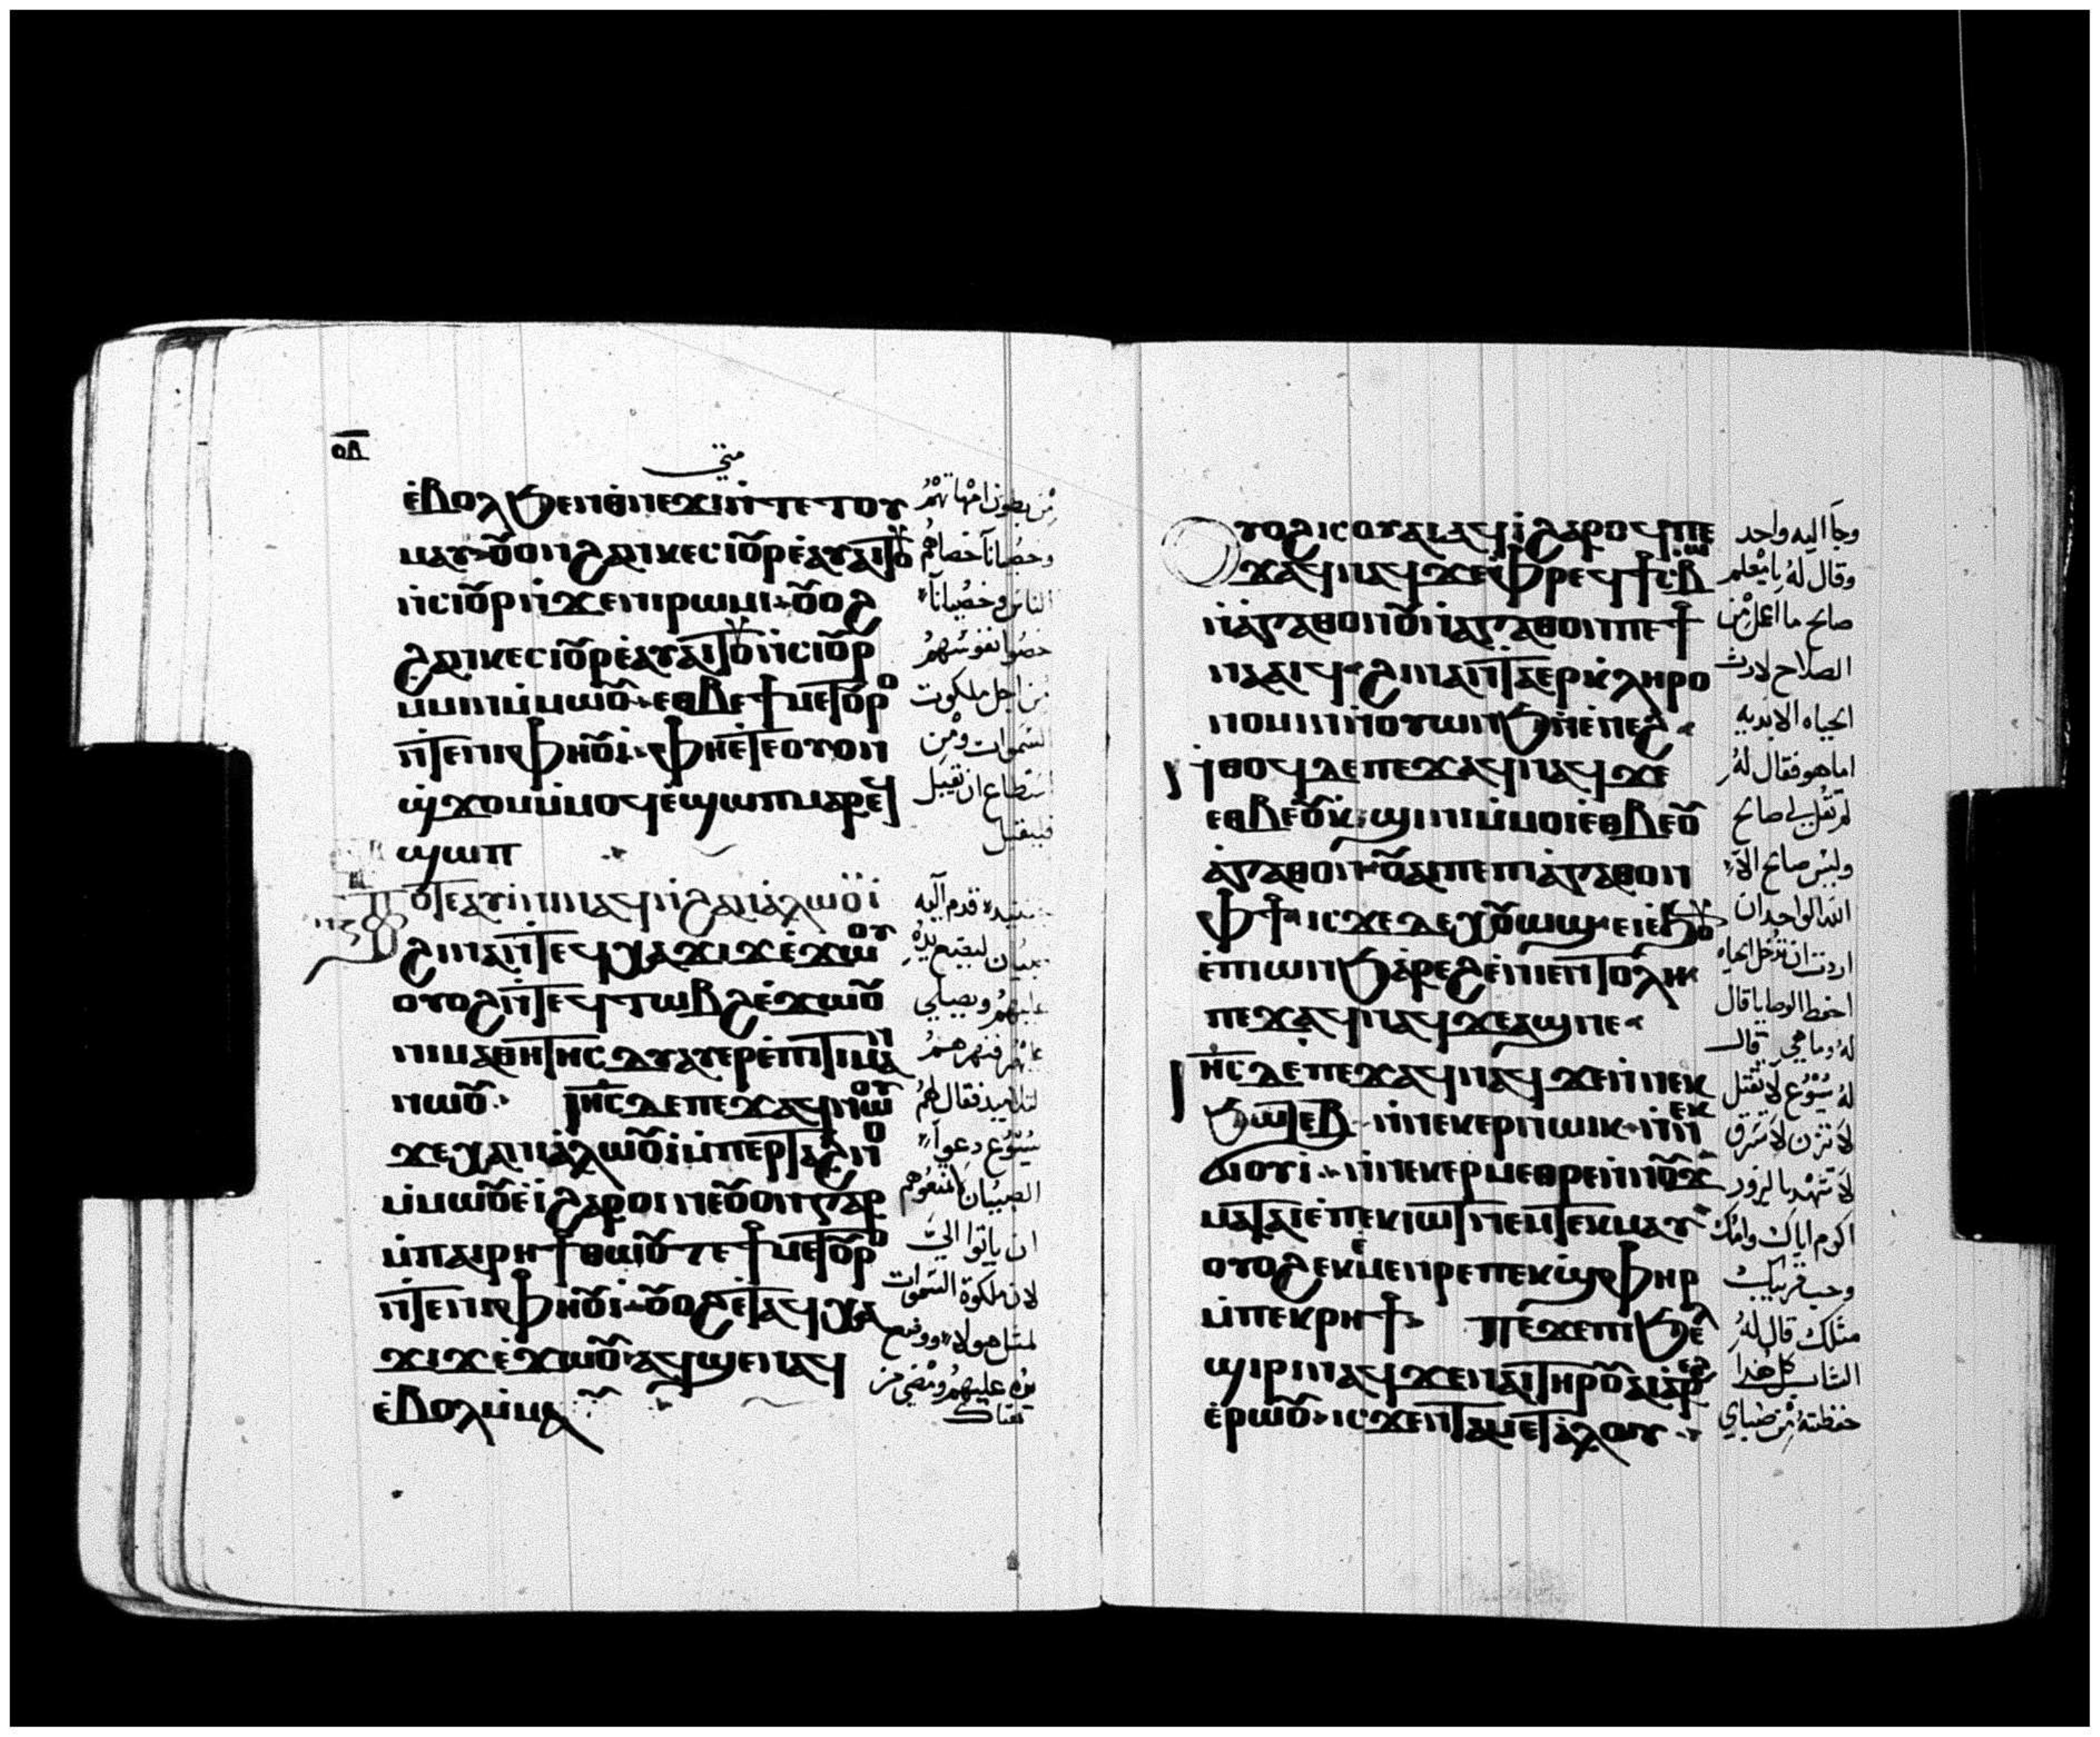 متى
ⲉ̀ⲃⲟⲗϧⲉⲛⲑ̀ⲛⲉϫⲓⲛ̀ⲧⲉⲧⲟⲩ
ⲙⲁⲩ ⲟ̅ⲟⲛϩⲁⲛⲕⲉⲥⲓⲟ̅ⲣⲉ̀ⲁⲩⲁⲓⲧⲟ⩔
ⲛ̀ⲥⲓⲟ̅ⲣⲛ̀ϫⲉⲛⲓⲣⲱⲙⲓ ⲟ̅ⲟϩ
ϩⲁⲛⲕⲉⲥⲓⲟ̅ⲣⲉ̀ⲁⲩⲁⲓⲧⲟ⩔ⲛ̀ⲥⲓⲟ̅ⲣ
ⲙ̀ⲙⲓⲛⲙ̀ⲙⲱⲟ̅ ⲉⲑⲃⲉϯⲙⲉⲧⲟ̅ⲣⲟ
ⲛ̀ⲧⲉⲛⲓⲫⲏⲟ̅ⲓ̀ ⲫⲏⲉ̀ⲧⲉⲟⲩⲟⲛ
ϣ̀ϫⲟⲙⲙ̀ⲙⲟϥⲉ̀ϣⲱⲡⲙⲁⲣⲉϥ
ϣⲱⲡ
ⲡⲟⲧⲉⲁⲩⲓ̀ⲛⲓⲛⲁϥⲛ̀ϩⲁⲛⲁ̀ⲗⲱⲟ̈ⲓ̀
ϩⲓⲛⲁⲛ̀ⲧⲉϥⲭⲁϫⲓϫⲉ̀ϫⲱⲟⲩ
ⲟⲩⲟϩⲛ̀ⲧⲉϥⲧⲱⲃϩⲉ̀ϫⲱⲟ̅
ⲛⲓⲙⲁⲑⲏⲧⲏⲥⲇⲉⲁⲩⲉⲣⲉ̀ⲡⲓⲧⲓⲙⲁⲛ
ⲛⲱⲟ̅ ⲓⲏ̅ⲥⲇⲉⲡⲉϫⲁϥⲛⲱⲟⲩ
ϫⲉⲭⲁⲛⲓⲁ̀ⲗⲱⲟ̅ⲓ̀ⲙ̀ⲡⲉⲣⲧⲁϩⲛⲟ
ⲙ̀ⲙⲱⲟ̅ⲉ̀ⲓ̀ϩⲁⲣⲟⲓ ⲛⲉⲟ̅ⲟⲛⲅⲁⲣ
ⲙ̀ⲡⲁⲓⲣⲏϯⲑⲱⲟ̅ⲧⲉϯⲙⲉⲧⲟ̅ⲣⲟ
ⲛ̀ⲧⲉⲛⲓⲫⲏⲟ̅ⲓ̀ ⲟ̅ⲟϩⲉ̀ⲧⲁϥⲭⲁ
ϫⲓϫⲉ̀ϫⲱⲟ̅ ⲁϥϣⲉⲛⲁϥ
ⲉ̀ⲃⲟⲗⲙ̀ⲙⲁ
من بطون امهاتهم
وخصيانا خصاهم
الناس وخصيانا
خصوا نفوسهم
من اجل ملكوت
السموات ومن
استطاع ان يقبل
فليقبل
قدم اليه
صبيان ليضع يده
عليهم ويصلي
فنهرهم
التلاميذ فقال لهم
يسوع دعوا
الصبيان لا تمنعوهم
ان ياتوا الي
لان ملكوة السموات
لمثل هولاء ووضع
يده عليهم ومضي من
هناك
ⲟⲩⲟϩⲓⲥⲟⲩⲁⲓⲁϥⲓ̀ϩⲁⲣⲟϥⲡⲉ
ϫⲁϥⲛⲁϥϫⲉⲫ̀ⲣⲉϥϯⲥⲃⲱ
ⲛ̀ⲁ̀ⲅⲁⲑⲟⲛⲟ̅ⲛ̀ⲁⲅⲁⲑⲟⲛⲡⲉϯ
ⲛⲁⲁⲓϥ ϩⲓⲛⲁⲛ̀ⲧⲁⲉⲣⲕ̀ⲗⲏⲣⲟ
ⲛⲟⲙⲓⲛⲛ̀ⲟⲩⲱⲛϧⲛ̀ⲉ̀ⲛⲉϩ
ⲛ̀ⲑⲟϥⲇⲉⲡⲉϫⲁϥⲛⲁϥϫⲉ
ⲉⲑⲃⲉⲟ̅ⲕ̀ϣⲓⲛⲓⲙ̀ⲙⲟⲓⲉⲑⲃⲉⲟ̅
ⲁ̀ⲅⲁⲑⲟⲛ ⲟ̅ⲁⲓⲡⲉⲡⲓⲁ̀ⲅⲁⲑⲟⲛ
ⲫϯ ⲓⲥϫⲉⲇⲉⲭⲟ̅ⲱϣ ⲉⲓⲉ̀ϧⲟ⩔
ⲉ̀ⲡⲓⲱⲛϧⲁ̀ⲣⲉϩⲉ̀ⲛⲓⲉⲛⲧⲟⲗⲏ
ⲡⲉϫⲁϥⲛⲁϥϫⲉⲁϣⲛⲉ
ⲓⲏ̅ⲥⲇⲉⲡⲉϫⲁϥⲛⲁϥϫⲉⲛ̀ⲛⲉⲕ
ϧⲱⲧⲉⲃ ⲛ̀ⲛⲉⲕⲉⲣⲛⲱⲓⲕ ⲛ̀ⲛⲉⲕ
ϭⲓⲟⲩⲓ̀ ⲛ̀ⲛⲉⲕⲉⲣⲙⲉⲑⲣⲉⲛ̀ⲛⲟ̅ϫ
ⲙⲁⲧⲁⲓⲉ̀ⲡⲉⲕⲓⲱⲧⲛⲉⲙⲧⲉⲕⲙⲁⲩ
ⲟⲩⲟϩⲉⲕⲉ̀ⲙⲉⲛⲣⲉⲡⲉⲕϣ̀ⲫⲏⲣ
ⲙ̀ⲡⲉⲕⲣⲏϯ ⲡⲉϫⲉⲡⲓϧⲉⲗ
ϣⲓⲣⲓⲛⲁϥϫⲉⲛⲁⲓⲧⲏⲣⲟ̅ⲁⲓⲁ̀ⲣⲉϩ
ⲉ̀ⲣⲱⲟ̅ ⲓⲥϫⲉⲛⲧⲁⲙⲉⲧⲁ̀ⲗⲟⲩ
وجا اليه واحد
وقال له يا معلم
صالح ما اعمل من
الصلاح لارث
الحياه الابديه
اما هو فقال له
لم تقل لي صالح
وليس صالح الا
الله الواحد ان
اردت ان تدخل الحياه
احفظ الوصايا قال
له وما هي قال
له يسوع لا تقتل
لا تزن لا تسرق
لا تشهد بالزور
اكرم اباك وامك
وحب قريبك
مثلك قال له
الشاب كل هذا
حفظته من صباي